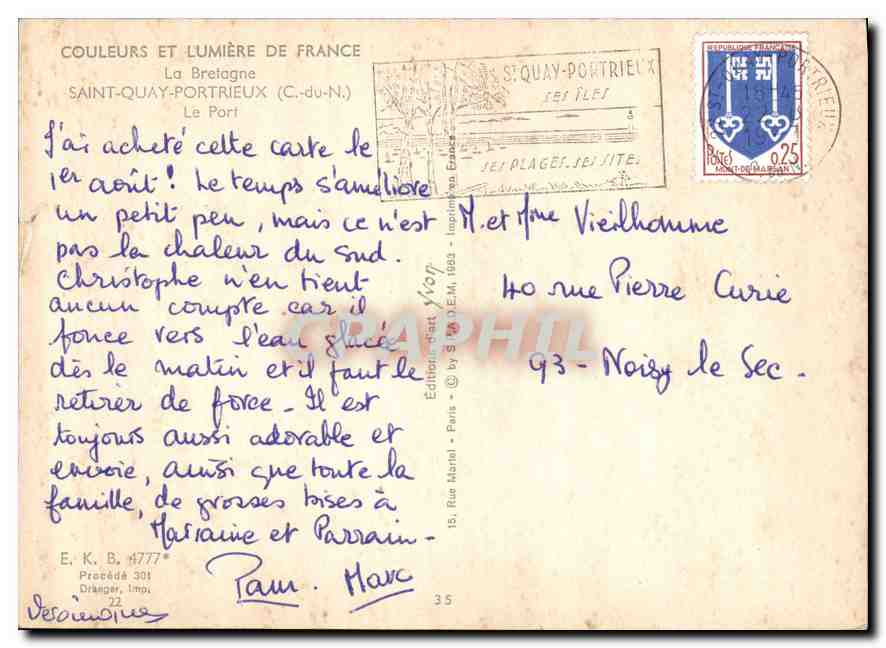 COULEURS ET LUMIÈRE DE FRANCE
La Bretagne
SAINT-QUAY-PORTRIEUX (C.-du-N.)
Le Port
J'ai acheté cette carte le
1er août! Le temps s'améliore
un petit peu, mais ce n'est
pas la chaleur du sud.
Christophe n'en tient
aucun compte car il
fonce vers l'eau glacée
dès le matin et il faut le
retirer de force. Il est
toujours aussi adorable et
envoie, ainsi que toute la
famille, de grosses bises à
Marraine et Parrain.
Marc
E. K. B. 4777*
Procédé 301
Draeger, Imp.
22
35
15, Rue Martel - Paris - © by S.P.A.D.E.M, 1963 - Imprimé en France
Éditions d'art Yvon
ST QUAY-PORTRIEUX
SES ÎLES
SES PLAGES. SES SITES
REPUBLIQUE FRANÇAISE
POSTES
0,25
MONT-DE-MARSAN
ST-QUAY-PORTRIEUX
M. et Mme Vieilhomme
40 rue Pierre Curie
93 - Noisy le Sec.
CPAPHIL